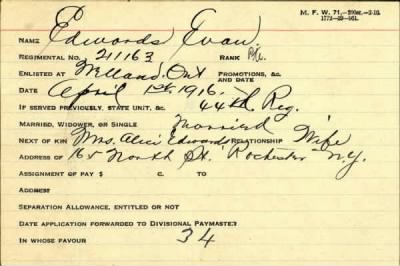 M. F. W. 71.
NAME Edwards Evan
REGIMENTAL NO. 211163 RANK Pte.
ENLISTED AT Welland, Ont PROMOTIONS, &C. AND DATE
DATE April 1st 1916.
IF SERVED PREVIOUSLY, STATE UNIT, &C. 44th Reg.
MARRIED, WIDOWER, OR SINGLE Married
NEXT OF KIN Mrs. Alice Edwards RELATIONSHIP Wife
ADDRESS OF 165 North St. Rochester N.Y.
ASSIGNMENT OF PAY $ C. TO
ADDRESS
SEPARATION ALLOWANCE, ENTITLED OR NOT
DATE APPLICATION FORWARDED TO DIVISIONAL PAYMASTER
IN WHOSE FAVOUR 34